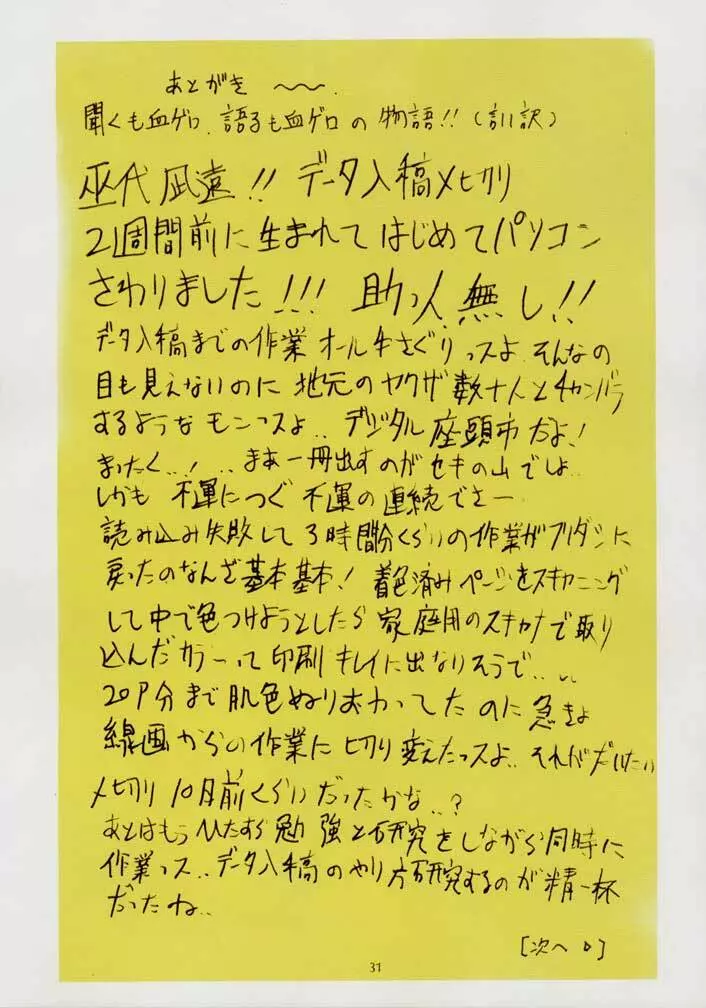 あとがき 〜〜.
聞くも血ゲロ、語るも血ゲロの物語!!(言い訳)
巫代凪遠!! データ入稿〆切り
2週間前に生まれてはじめてパソコン
さわりました!!! 助っ人、無し!!
データ入稿までの作業 オール手さぐりっスよ、そんなの
目も見えないのに 地元のヤクザ数十人とチャンバラ
するようなモンっスよ.. デジタル座頭市だよ!
まったく..! ..まあ一冊出すのがセキの山でしょ..
しかも 不運につぐ不運の連続でさー
読み込み失敗して3時間分くらいの作業がフリダシに
戻ったのなんざ基本基本! 着色済みページをスキャニング
して中で色つけようとしたら 家庭用のスキャナで取り
込んだカラーって印刷キレイに出なりそうで.. ..
20P分まで肌色ぬりおわってたのに 急きょ
線画からの作業に切り変えたっスよ.. それがだいたい
〆切り10日前くらいだったかな..?
あとはもうひたすら勉強と研究をしながら同時に
作業っス.. データ入稿のやり方研究するのが精一杯
だったね..
[次へ▷]
31